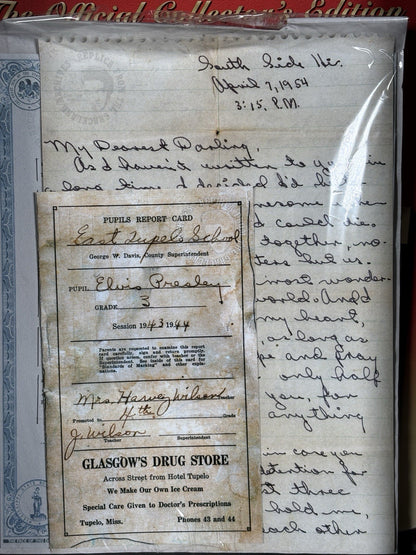 The Official Collector's Edition
South Side Hi.
April 7, 1954
3:15, P.M.
My Dearest Darling,
As I haven't written to you in
a long time I decided I'd
PUPILS REPORT CARD
East Tupelo School
George W. Davis, County Superintendent
PUPIL Elvis Presley
GRADE 3
Session 1943 1944
Parents are requested to examine this report
card carefully, sign and return promptly.
If question arises, confer with teacher or the
Superintendent. See inside of this card for
"Standards of Marking" and other explanations.
Mrs. Harvey Wilson Teacher
Promoted to 4th Grade
J. Wilson
Teacher Superintendent
GLASGOW'S DRUG STORE
Across Street from Hotel Tupelo
We Make Our Own Ice Cream
Special Care Given to Doctor's Prescriptions
Tupelo, Miss. Phones 43 and 44
when
could die.
together, no
but us.
most wonder-
world. And
my heart,
as long as
and pray
only half
you, for
anything
in case you
detention for
three
hold me,
each other